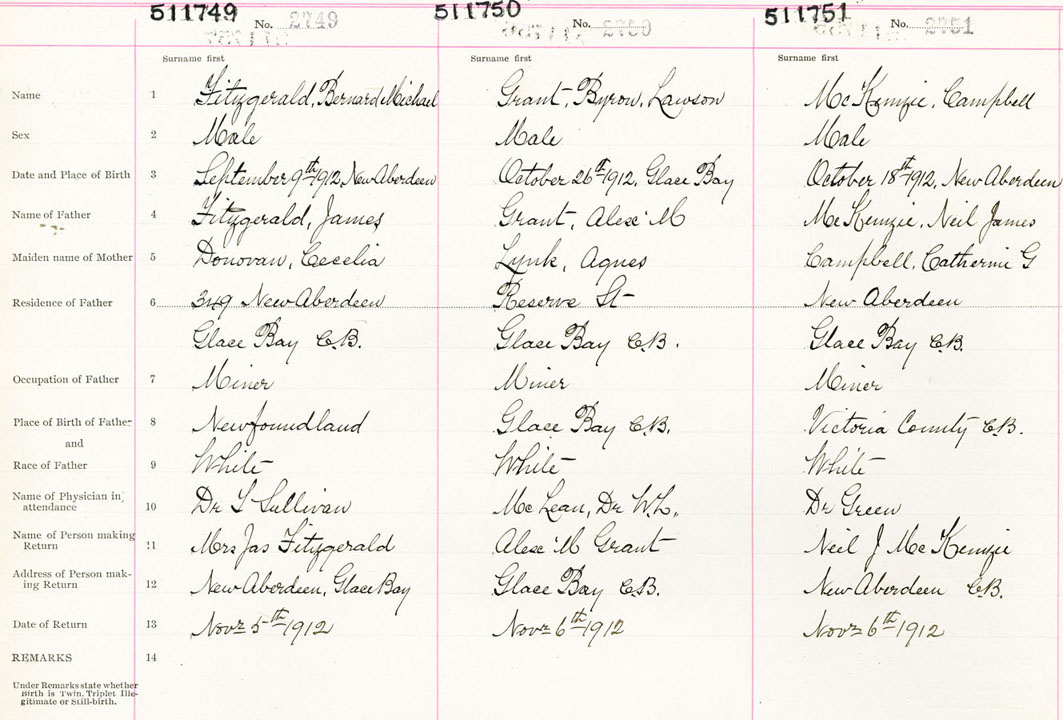 511749 No. 2749 511750 No. 2750 511751 No. 2751
Surname first Surname first Surname first
Name 1 Fitzgerald, Bernard Michael Grant, Byron, Lawson McKenzie, Campbell
Sex 2 Male Male Male
Date and Place of Birth 3 September 9th 1912, New Aberdeen October 26th 1912, Glace Bay October 18th 1912, New Aberdeen
Name of Father 4 Fitzgerald, James Grant, Alex M McKenzie, Neil James
Maiden name of Mother 5 Donovan, Cecelia Lynk, Agnes Campbell, Catherine G
Residence of Father 6 349 New Aberdeen Reserve St New Aberdeen
Glace Bay C.B. Glace Bay C.B. Glace Bay C.B.
Occupation of Father 7 Miner Miner Miner
Place of Birth of Father 8 Newfoundland Glace Bay C.B. Victoria County C.B.
and
Race of Father 9 White White White
Name of Physician in
attendance 10 Dr Sullivan McLean, Dr W.L. Dr Green
Name of Person making
Return 11 Mrs Jas Fitzgerald Alex M Grant Neil J McKenzie
Address of Person mak-
ing Return 12 New Aberdeen, Glace Bay Glace Bay C.B. New Aberdeen C.B.
Date of Return 13 Novr 5th 1912 Novr 6th 1912 Novr 6th 1912
REMARKS 14
Under Remarks state whether
Birth is Twin, Triplet Ille-
gitimate or Still-birth.